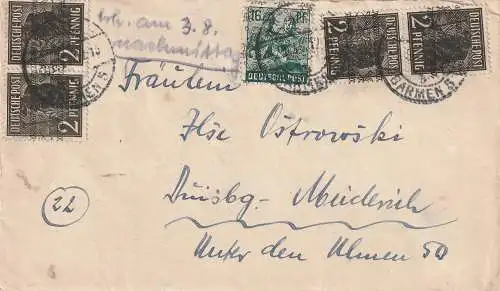 DEUTSCHE POST
2 PFENNIG
DEUTSCHE POST
2 PFENNIG
16 PF
DEUTSCHE POST
2 PFENNIG
2 PFENNIG
BARMEN 5
am 3.8.
nachmittag
Fräulein
Ilse Ostrowski
Duisbg.- Meiderich
Unter den Ulmen 50
(22)